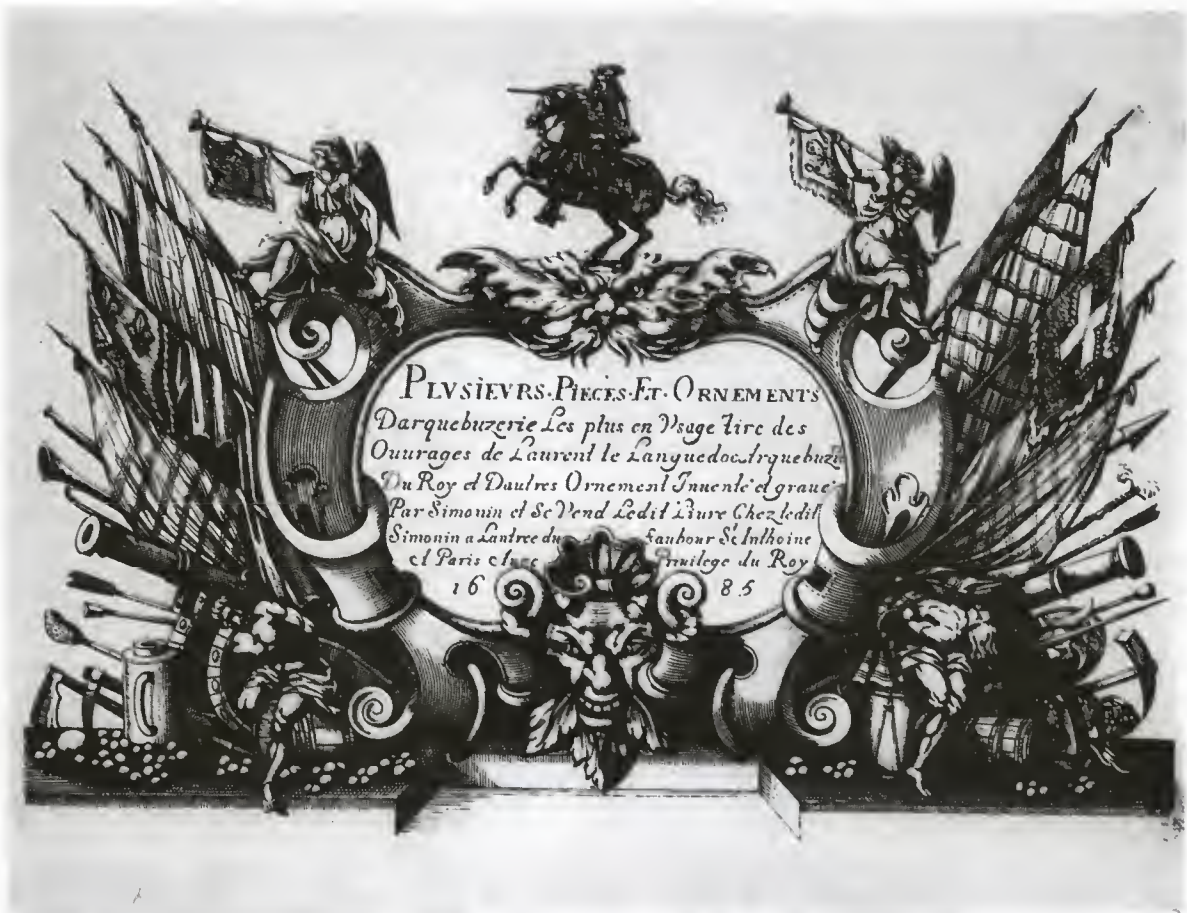 PLVSIEVRS·PIECES·ET·ORNEMENTS
Darquebuzerie Les plus en Vsage tire des
Ouurages de Laurent le Languedoc Arquebuzie
Du Roy et Dautres Ornement Inuente et graue
Par Simonin et Se Vend Ledit Liure Chez ledit
Simonin a Lantree du faubour St Anthoine
et Paris Auec Priuilege du Roy
16 85